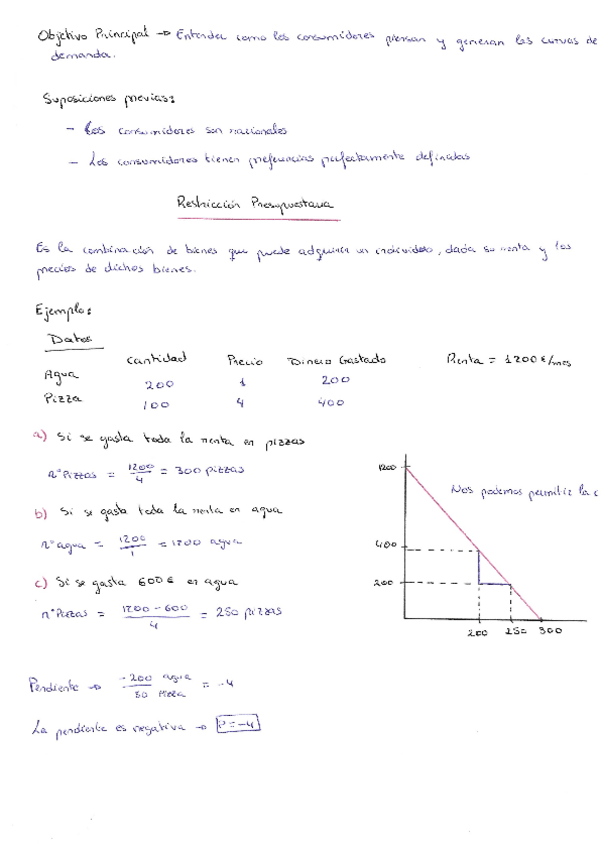 Objetivo Principal → Entender como los consumidores piensan y generan las curvas de
demanda.
Suposiciones previas:
- Los consumidores son racionales
- Los consumidores tienen preferencias perfectamente definidas
Restricción Presupuestaria
Es la combinación de bienes que puede adquirir un individuo, dada su renta y los
precios de dichos bienes.
Ejemplo:
Datos
Cantidad Precio Dinero Gastado Renta = 1200€/mes
Agua 200 1 200
Pizza 100 4 400
a) Si se gasta toda la renta en pizzas
nº Pizzas = 1200/4 = 300 pizzas
b) Si se gasta toda la renta en agua
nº agua = 1200/1 = 1200 agua
c) Si se gasta 600€ en agua
nº Pizzas = 1200 - 600 / 4 = 250 pizzas
1200
Nos podemos permitir la c
400
200
200 250 300
Pendiente → -200 agua / 50 Pizza = -4
La pendiente es negativa → P = -4